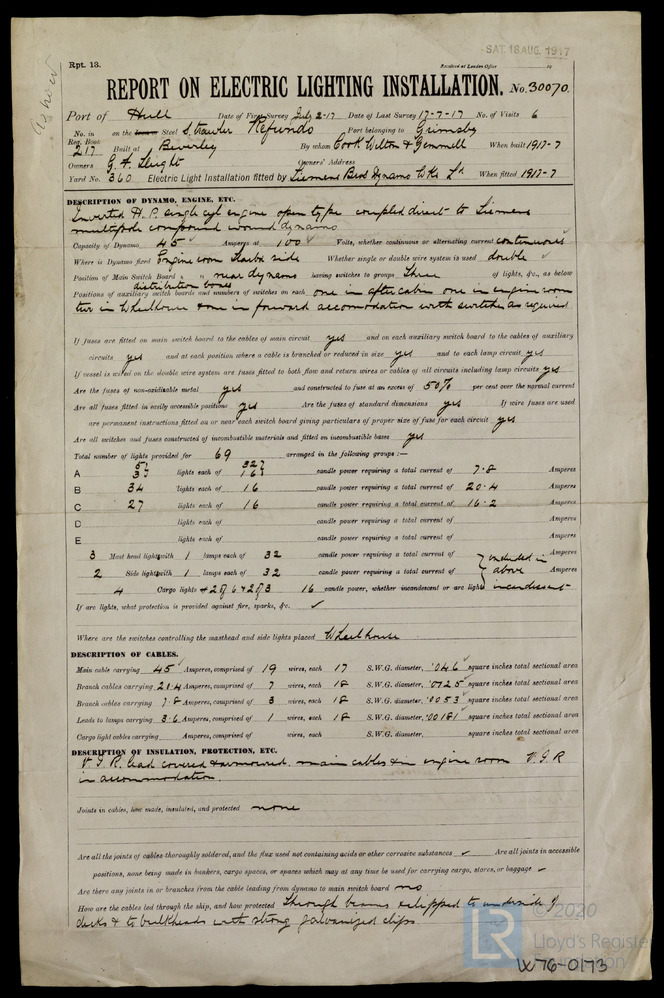 SAT. 18 AUG. 1917
Rpt. 13.
Received at London Office
REPORT ON ELECTRIC LIGHTING INSTALLATION. No. 30070.
Port of Hull Date of First Survey July 2-17 Date of Last Survey 17-7-17 No. of Visits 6
No. in Reg. Book 217 on the Steel S. trawler Refundo Port belonging to Grimsby
Built at Beverley By whom Cook Welton & Gemmell When built 1917-7
Owners G. F. Sleight Owners' Address
Yard No. 360 Electric Light Installation fitted by Siemens Bros Dynamo Wks Ld When fitted 1917-7
DESCRIPTION OF DYNAMO, ENGINE, ETC.
Inverted H.P. single cyl engine open type coupled direct to Siemens
multipole compound wound dynamo
Capacity of Dynamo 45 Amperes at 100 Volts, whether continuous or alternating current continuous
Where is Dynamo fixed Engine room Starbd side Whether single or double wire system is used double
Position of Main Switch Board " " near dynamo having switches to groups three of lights, &c., as below
distribution boxes
Positions of auxiliary switch boards and numbers of switches on each one in after cabin one in engine room
two in Wheelhouse & one in forward accomodation with switches as required
If fuses are fitted on main switch board to the cables of main circuit yes and on each auxiliary switch board to the cables of auxiliary
circuits yes and at each position where a cable is branched or reduced in size yes and to each lamp circuit yes
If vessel is wired on the double wire system are fuses fitted to both flow and return wires or cables of all circuits including lamp circuits yes
Are the fuses of non-oxidizable metal yes and constructed to fuse at an excess of 50% per cent over the normal current
Are all fuses fitted in easily accessible positions yes Are the fuses of standard dimensions yes If wire fuses are used
are permanent instructions fitted on or near each switch board giving particulars of proper size of fuse for each circuit yes
Are all switches and fuses constructed of incombustible materials and fitted on incombustible bases yes
Total number of lights provided for 69 arranged in the following groups :—
5 32
A 3 lights each of 16 candle power requiring a total current of 7.8 Amperes
B 34 lights each of 16 candle power requiring a total current of 20.4 Amperes
C 27 lights each of 16 candle power requiring a total current of 16.2 Amperes
D lights each of candle power requiring a total current of Amperes
E lights each of candle power requiring a total current of Amperes
3 Mast head light with 1 lamps each of 32 candle power requiring a total current of included in Amperes
2 Side light with 1 lamps each of 32 candle power requiring a total current of above Amperes
4 Cargo lights 2 of 6 & 2 of 3 16 candle power, whether incandescent or arc lights incandescent
If arc lights, what protection is provided against fire, sparks, &c. ✓
Where are the switches controlling the masthead and side lights placed Wheelhouse
DESCRIPTION OF CABLES.
Main cable carrying 45 Amperes, comprised of 19 wires, each 17 S.W.G. diameter, .046 square inches total sectional area
Branch cables carrying 20.4 Amperes, comprised of 7 wires, each 18 S.W.G. diameter, .0125 square inches total sectional area
Branch cables carrying 7.8 Amperes, comprised of 3 wires, each 18 S.W.G. diameter, .0053 square inches total sectional area
Leads to lamps carrying 3.6 Amperes, comprised of 1 wires, each 18 S.W.G. diameter, .00181 square inches total sectional area
Cargo light cables carrying Amperes, comprised of wires, each S.W.G. diameter, square inches total sectional area
DESCRIPTION OF INSULATION, PROTECTION, ETC.
V.I.R. lead covered & armoured. main cables & in engine room V.I.R
in accommodation.
Joints in cables, how made, insulated, and protected none
Are all the joints of cables thoroughly soldered, and the flux used not containing acids or other corrosive substances ✓ Are all joints in accessible
positions, none being made in bunkers, cargo spaces, or spaces which may at any time be used for carrying cargo, stores, or baggage ✓
Are there any joints in or branches from the cable leading from dynamo to main switch board no
How are the cables led through the ship, and how protected through beams & clipped to underside of
decks & to bulkheads with strong galvanized clips.
LR © 2020
Lloyd's Register
Foundation
W76-0173